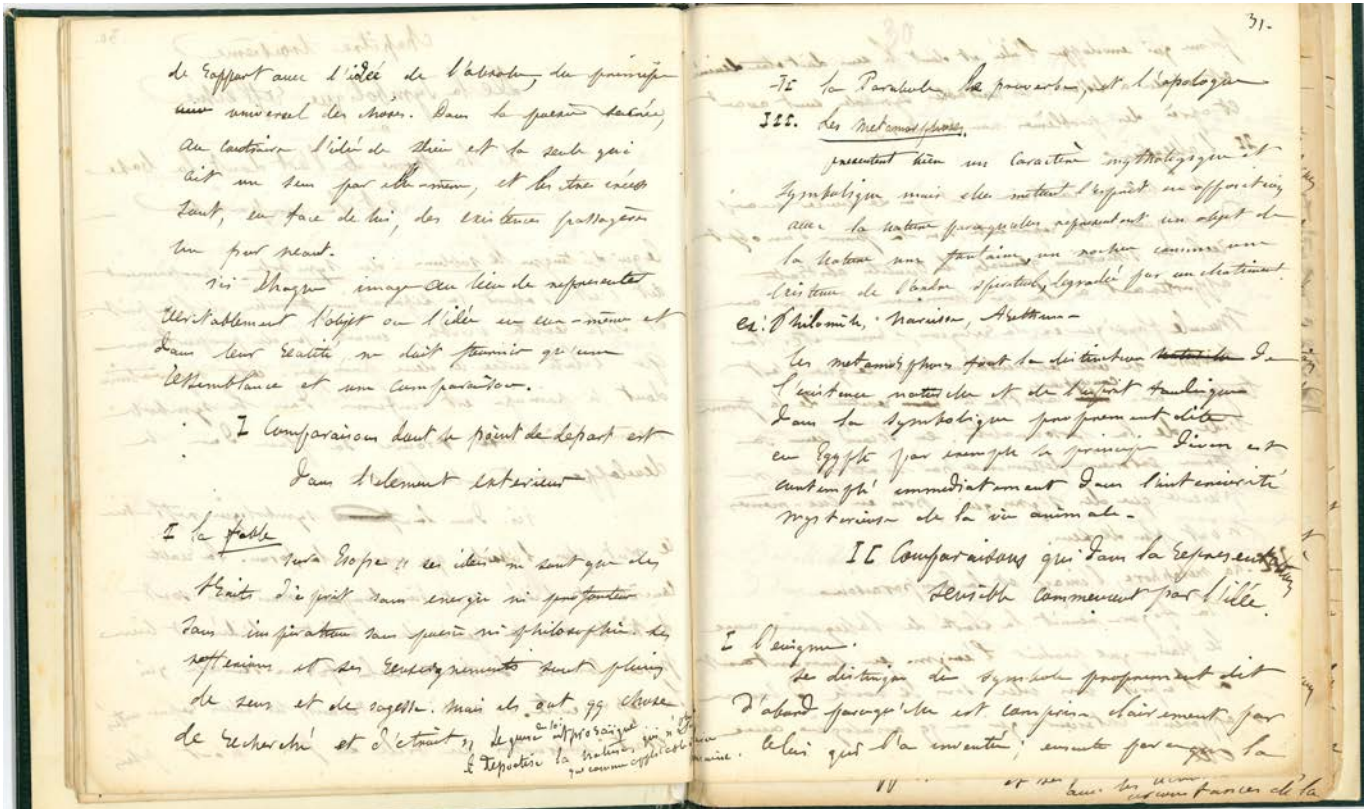 de rapport avec l'idée de l'absolu, du principe
universel des choses. Dans la poésie sacrée,
au contraire l'idée de Dieu est la seule qui
ait un sens par elle-même, et les êtres créés
sont, en face de lui, des existences passagères
un pur néant.
ici Chaque image au lieu de représenter
véritablement l'objet ou l'idée en eux-même et
dans leur réalité, ne doit fournir qu'une
ressemblance et une comparaison.
I Comparaisons dont le point de depart est
dans l'element exterieur
I la fable
Esope " ses idées ne sont que des
traits d'esprit sans energie ni profondeur
sans inspiration sans poesie ni philosophie. Ses
reflexions et ses enseignements sont pleins
de sens et de sagesse. mais ils ont qq chose
de recherché et d'étroit "
Le genre est prosaique
il depoetise la nature qui n'est
31-
II la Parabole le proverbe, et l'apologue
III. Les metamorphoses.
presentent bien un caractère mythologique et
symbolique mais elles mettent l'esprit en opposition
avec la nature parcequ'elles représentent un objet de
la nature une fontaine, un rocher comme une
existence de l'ordre spirituel, degradée par un chatiment
ex: Philomèle, Narcisse, Arethuse-
les metamorphoses font la distinction de
l'existence naturelle et de l'esprit tandis que
dans la symbolique proprement dite
en Egypte par exemple le principe divin est
contemplé immediatement dans l'interiorité
mysterieuse de la vie animale-
II Comparaisons qui dans la representation
sensible commencent par l'idée.
I l'enigme.
se distingue du symbole proprement dit
D'abord parcequ'elle est comprise clairement par
celui qui l'a inventée; ensuite parceque la
circonstances de la